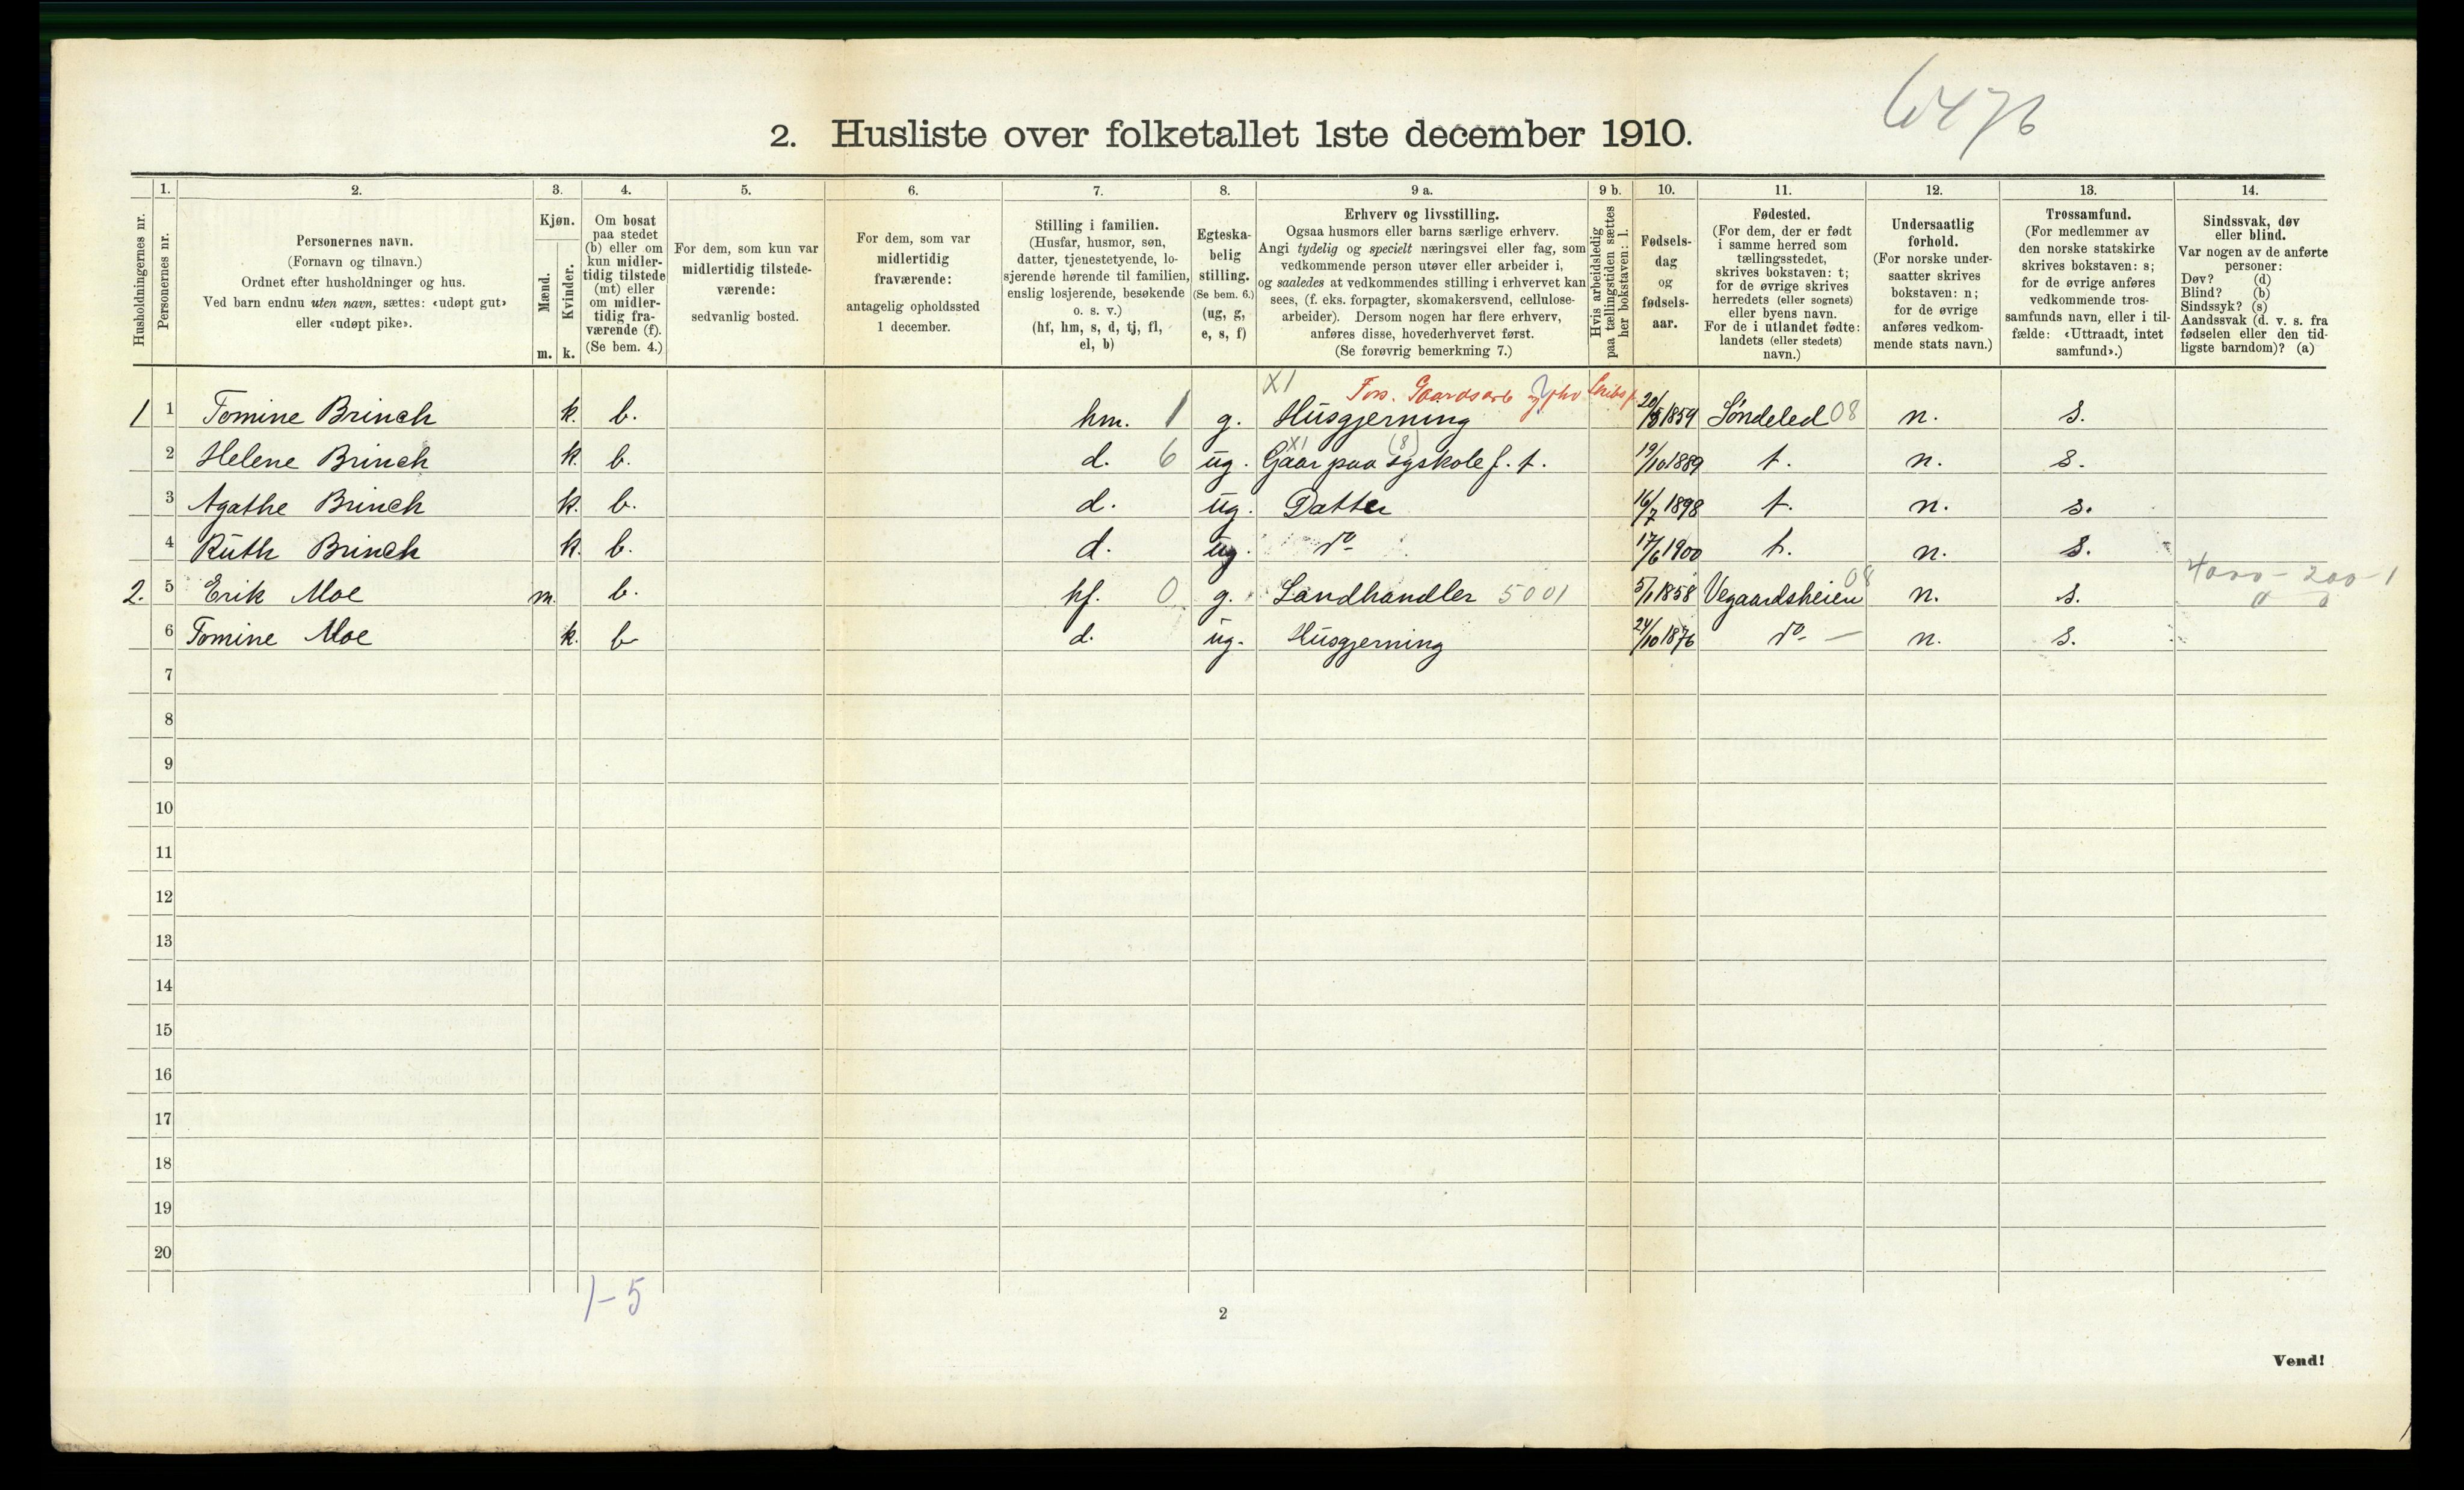 6476
2. Husliste over folketallet 1ste december 1910.
Husholdningernes nr.
1. Personernes nr.
2. Personernes navn.
(Fornavn og tilnavn.)
Ordnet efter husholdninger og hus.
Ved barn endnu uten navn, sættes: «udøpt gut»
eller «udøpt pike».
3. Kjøn.
Mænd. m.
Kvinder. k.
4. Om bosat
paa stedet
(b) eller om
kun midler-
tidig tilstede
(mt) eller
om midler-
tidig fra-
værende (f).
(Se bem. 4.)
5. For dem, som kun var
midlertidig tilstede-
værende:
sedvanlig bosted.
6. For dem, som var
midlertidig
fraværende:
antagelig opholdssted
1 december.
7. Stilling i familien.
(Husfar, husmor, søn,
datter, tjenestetyende, lo-
sjerende hørende til familien,
enslig losjerende, besøkende
o. s. v.)
(hf, hm, s, d, tj, fl,
el, b)
8. Egteska-
belig
stilling.
(Se bem. 6.)
(ug, g,
e, s, f)
9 a. Erhverv og livsstilling.
Ogsaa husmors eller barns særlige erhverv.
Angi tydelig og specielt næringsvei eller fag, som
vedkommende person utøver eller arbeider i,
og saaledes at vedkommendes stilling i erhvervet kan
sees, (f. eks. forpagter, skomakersvend, cellulose-
arbeider). Dersom nogen har flere erhverv,
anføres disse, hovederhvervet først.
(Se forøvrig bemerkning 7.)
9 b. Hvis arbeidsledig
paa tællingstiden sættes
her bokstaven: l.
10. Fødsels-
dag
og
fødsels-
aar.
11. Fødested.
(For dem, der er født
i samme herred som
tællingsstedet,
skrives bokstaven: t;
for de øvrige skrives
herredets (eller sognets)
eller byens navn.
For de i utlandet fødte:
landets (eller stedets)
navn.)
12. Undersaatlig
forhold.
(For norske under-
saatter skrives
bokstaven: n;
for de øvrige
anføres vedkom-
mende stats navn.)
13. Trossamfund.
(For medlemmer av
den norske statskirke
skrives bokstaven: s;
for de øvrige anføres
vedkommende tros-
samfunds navn, eller i til-
fælde: «Uttraadt, intet
samfund».)
14. Sindssvak, døv
eller blind.
Var nogen av de anførte
personer:
Døv? (d)
Blind? (b)
Sindssyk? (s)
Aandssvak (d. v. s. fra
fødselen eller den tid-
ligste barndom)? (a)
X1 Fors. Gaardsarb
1 1 Tomine Brinch k. b. hm. 1 g. Husgjerning 20/8 1859 Søndeled 08 n. s.
X1 (8)
2 Helene Brinch k. b. d. 6 ug. Gaar paa syskole f. t. 19/10 1889 t. n. s.
3 Agathe Brinch k. b. d. ug. Datter 16/7 1898 t. n. s.
4 Ruth Brinch k. b. d. ug. do 17/6 1900 t. n. s.
2. 5 Erik Moe m. b. hf. 0 g. Landhandler 5001 5/1 1858 Vegaardsheien 08 n. s. 4000 - 200 - 1
0 0
6 Tomine Moe k. b d. ug. Husgjerning 24/10 1876 do — n. s.
7
8
9
10
11
12
13
14
15
16
17
18
19
20
1-5
2
Vend!